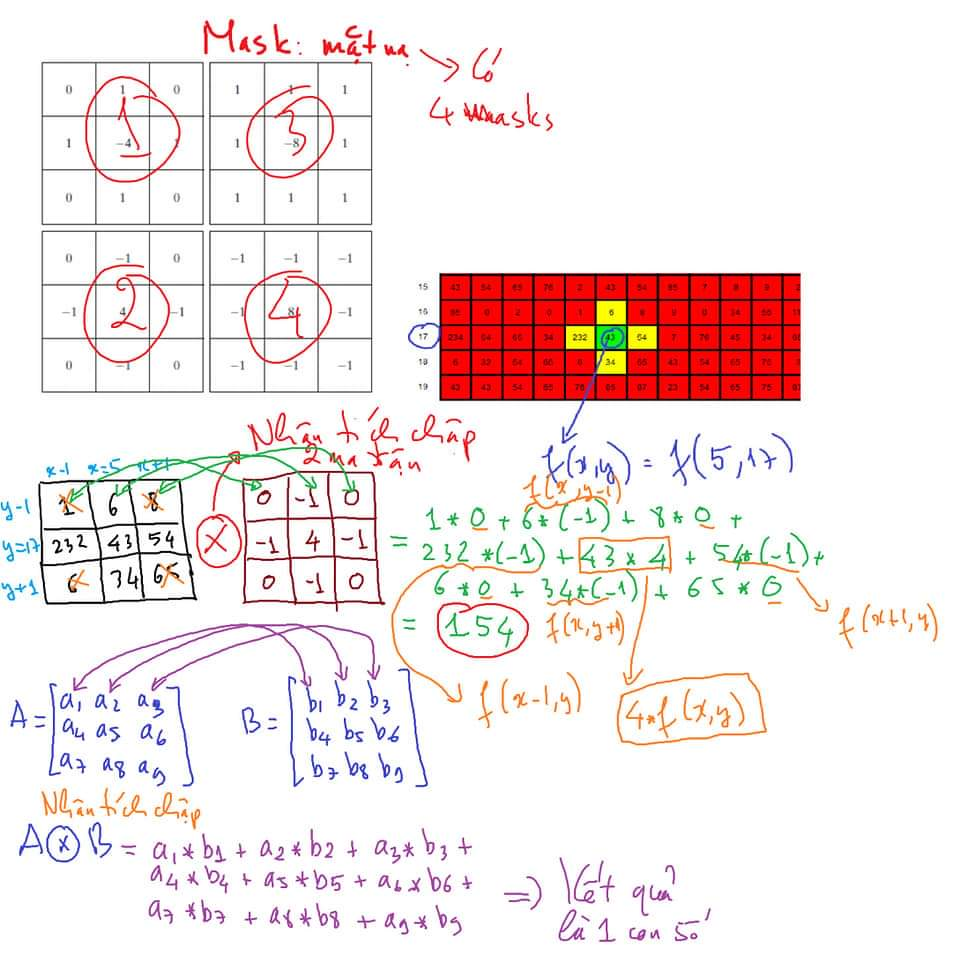 Mask: mặt nạ → Có
4 masks
0 1 0
1 -4
0 1 0
1
1 1 1
1 -8 1
1 1 1
3
0 -1 0
-1 4 -1
0 -1 0
2
-1 -1 -1
-1 8 -1
-1 -1 -1
4
15 43 54 65 76 2 43 54 65 7 8 9
16 0 2 0 1 6 0
17 234 54 65 34 232 43 54 7 76 45 34
18 6 32 54 34 65 43 54 65 75
19 43 43 54 65 76 87 23 54 65 75
f(x,y) = f(5,17)
Nhân tích chập
2 ma trận
x-1 x=5 x+1
y-1 1 6 8
y=17 232 43 54
y+1 6 34 65
X
0 -1 0
-1 4 -1
0 -1 0
f(x,y-1)
1*0 + 6*(-1) + 8*0 +
= 232*(-1) + 43*4 + 54*(-1) +
6*0 + 34*(-1) + 65*0
= 154
f(x,y+1)
f(x+1,y)
f(x-1,y)
4*f(x,y)
A = [a1 a2 a3
a4 a5 a6
a7 a8 a9]
B = [b1 b2 b3
b4 b5 b6
b7 b8 b9]
Nhân tích chập
A ⊗ B = a1*b1 + a2*b2 + a3*b3 +
a4*b4 + a5*b5 + a6*b6 +
a7*b7 + a8*b8 + a9*b9
=> Kết quả
là 1 con số